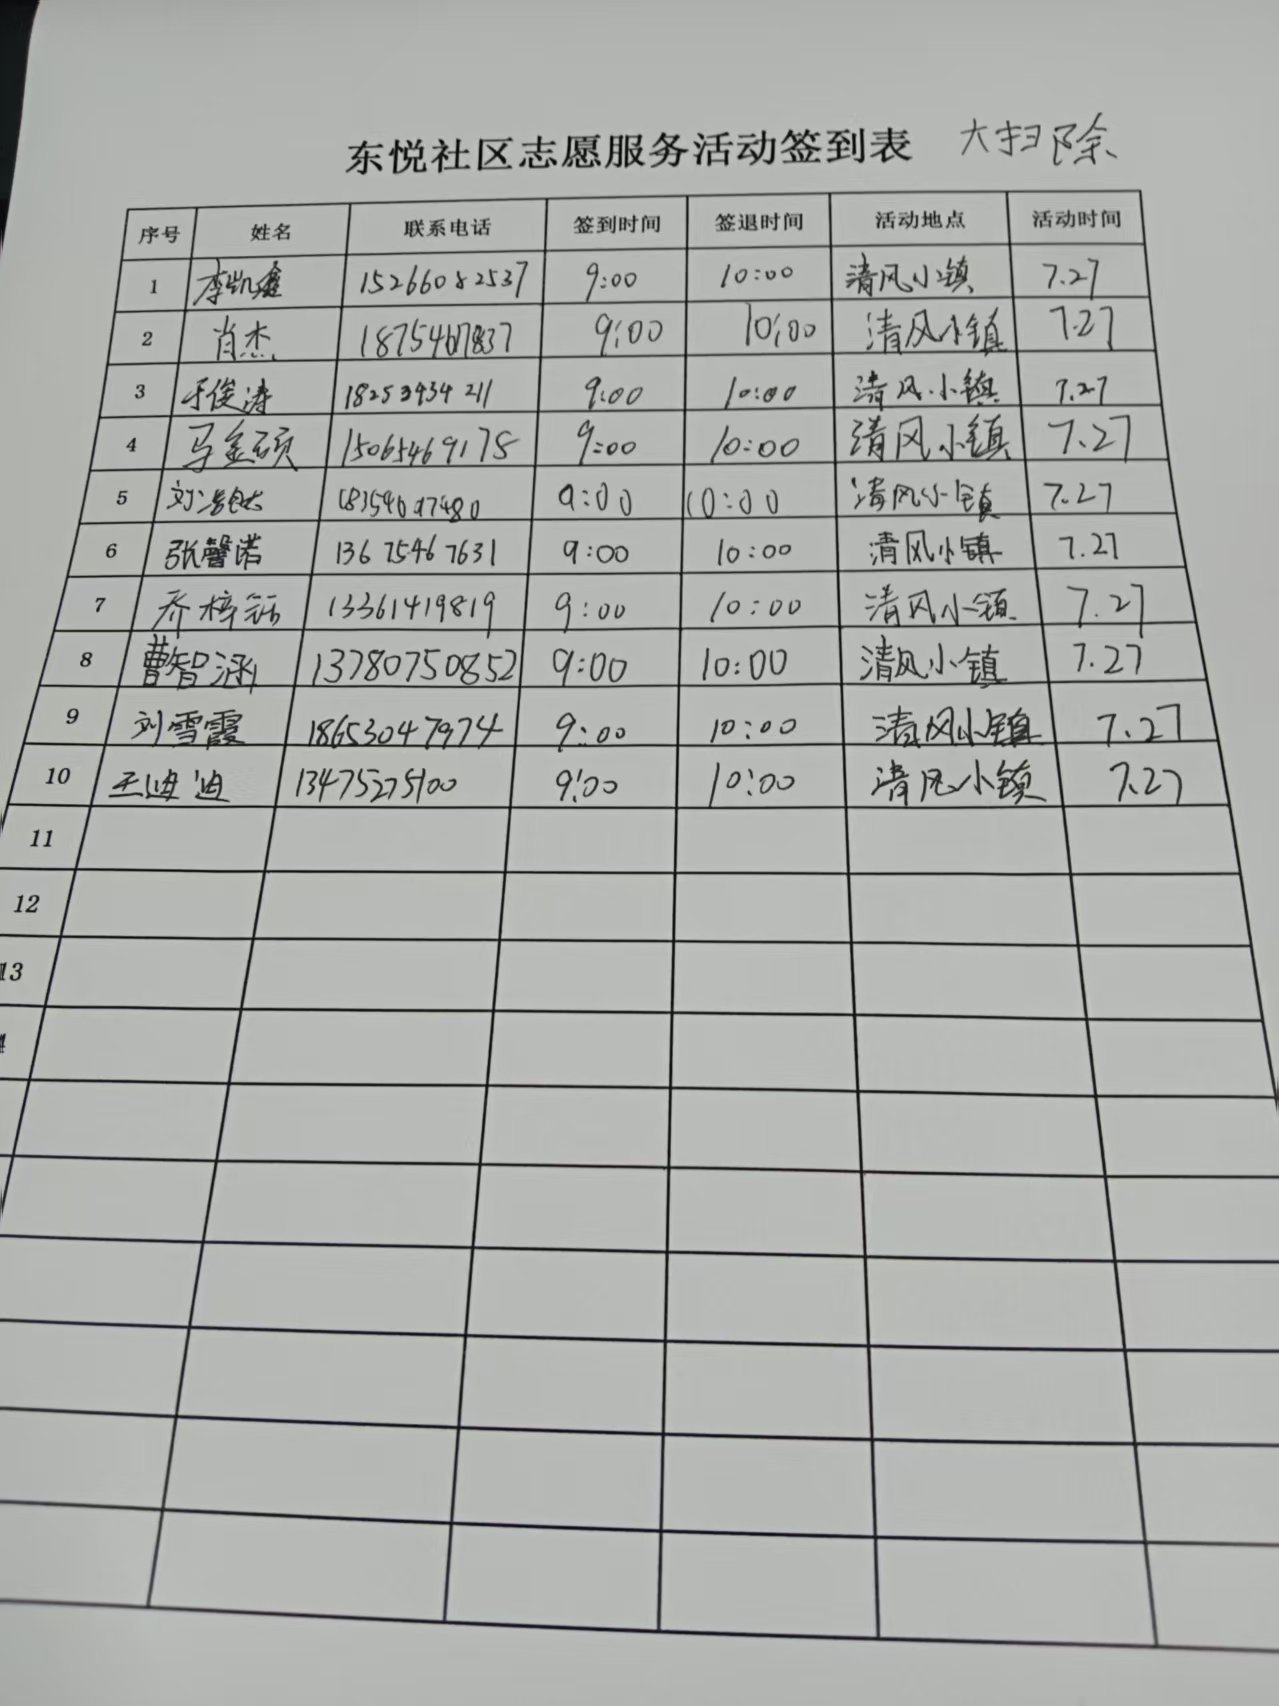 东悦社区志愿服务活动签到表 大扫除
序号 姓名 联系电话 签到时间 签退时间 活动地点 活动时间
1 李凯鑫 15266082537 9:00 10:00 清风小镇 7.27
2 肖杰 18754617837 9:00 10:00 清风小镇 7.27
3 于俊涛 18253434211 9:00 10:00 清风小镇 7.27
4 马金硕 15065469178 9:00 10:00 清风小镇 7.27
5 9:00 10:00 清风小镇 7.27
6 张馨诺 13675467631 9:00 10:00 清风小镇 7.27
7 乔梓钰 13361419819 9:00 10:00 清风小镇 7.27
8 曹智涵 13780750852 9:00 10:00 清风小镇 7.27
9 刘雪霞 18653047974 9:00 10:00 清风小镇 7.27
10 13475275100 9:00 10:00 清风小镇 7.27
11
12
13